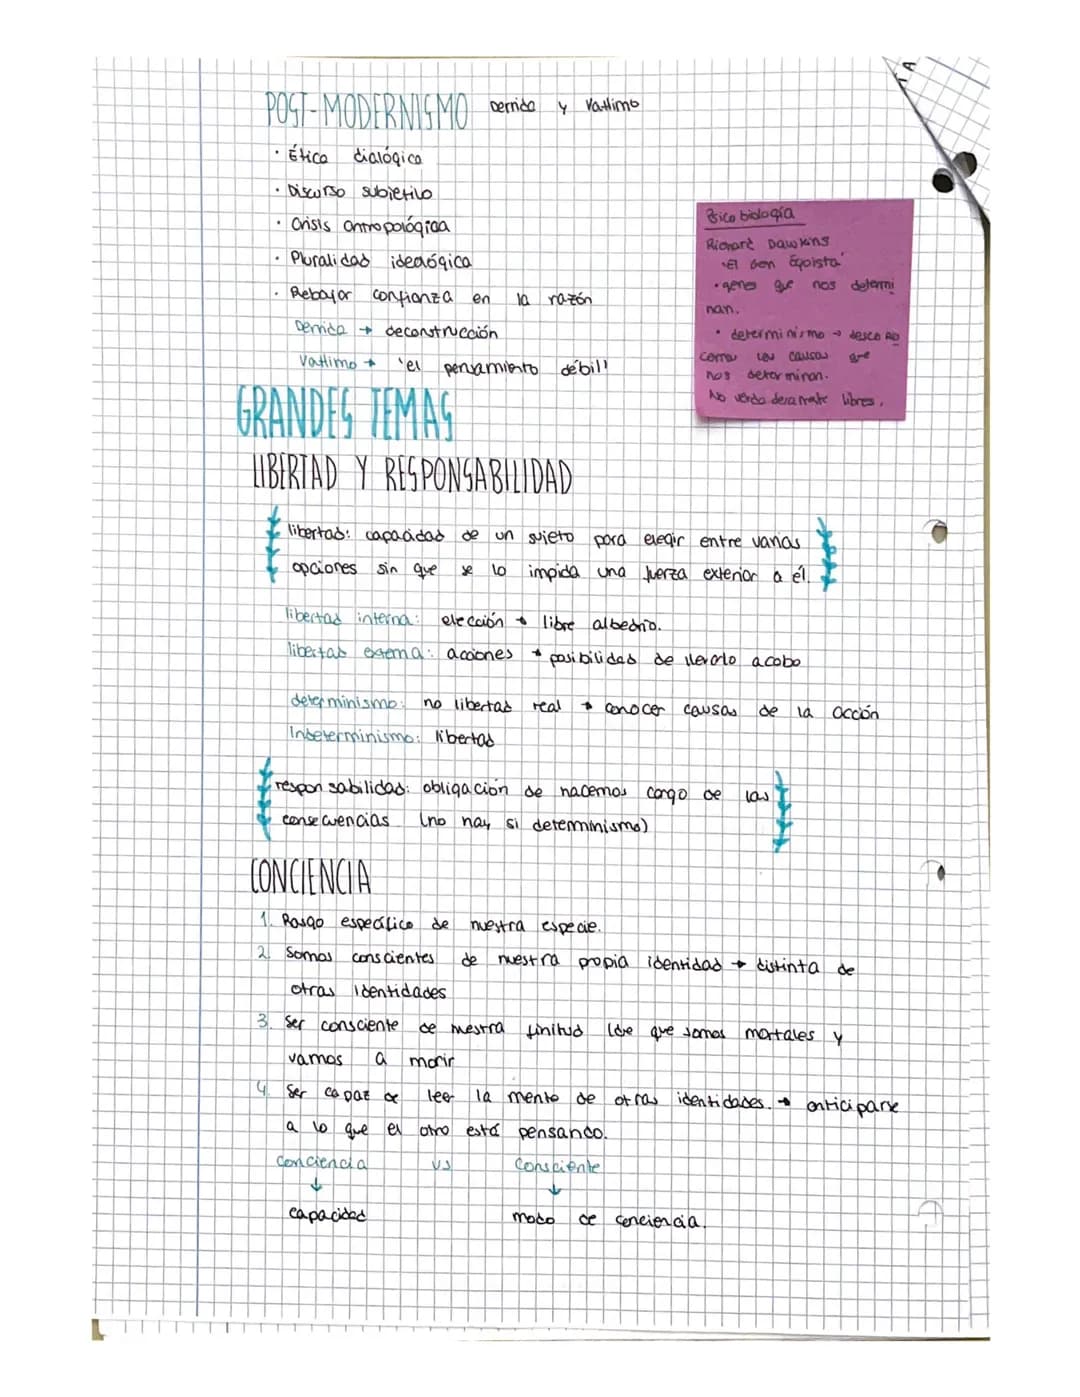 POST-MODERNISMO Derrida y Vattimo
· Ética dialógica
· Discurso subjetivo
· Crisis antropológica
· Pluralidad ideológica
· Rebajar confianza en la razón
Derrida → deconstrucción
Vattimo → 'el pensamiento débil'
Psicobiología
Richard Dawkins
'El Gen Egoista'
· genes que nos determi
nan.
· determinismo →
las causas que
nos determinan.
No verdaderamente libres.
GRANDES TEMAS
LIBERTAD Y RESPONSABILIDAD
libertad: capacidad de un sujeto para elegir entre varias
opciones sin que se lo impida una fuerza exterior a él.
libertad interna: elección → libre albedrio.
libertad externa: acciones → posibilidad de llevarlo acabo
determinismo: no libertad real → conocer causas de la acción
Indeterminismo: libertad
responsabilidad: obligación de hacernos cargo de las
consecuencias (no hay si determinismo)
CONCIENCIA
1. Rasgo específico de nuestra especie.
2. Somos conscientes de nuestra propia identidad → distinta de
otras identidades
3. Ser consciente de nuestra finitud (de que somos mortales y
vamos a morir
4. Ser capaz de leer la mente de otras identidades. → anticiparse
a lo que el otro está pensando.
conciencia vs Consciente
↓ ↓
capacidad modo de conciencia.